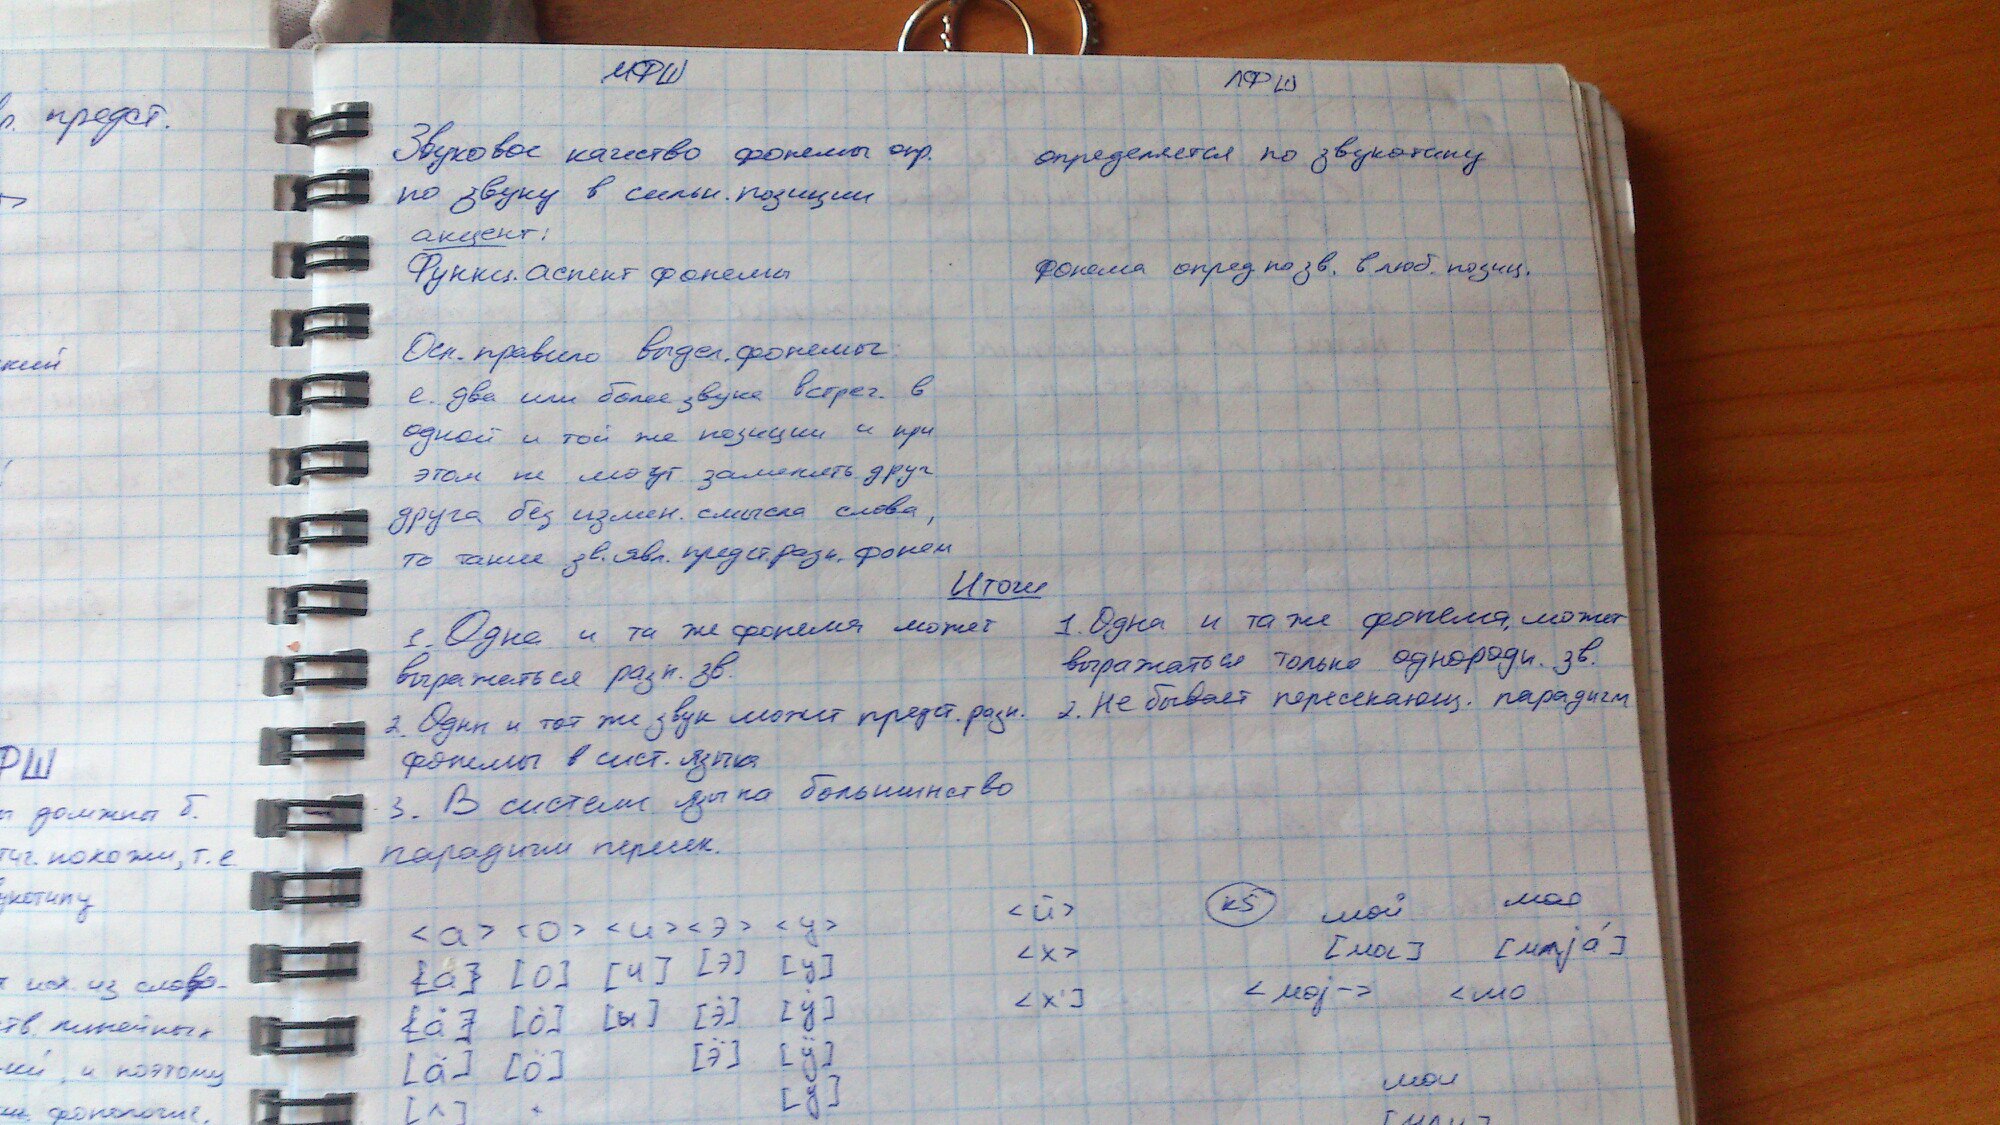 р. предст.
кий
РШ
ы должны б.
похожи, т.е
вукотипу
из слово-
тв. линейных
и поэтому
фонологие,
МФШ
ЛФШ
Звуковое качество фонемы опр.
по звуку в сильн. позиции
определяется по звукотипу
акцент:
Функц. аспект фонемы
фонема опред по зв. в люб. позиц.
Осн. правило выдел. фонемы:
е. два или более звука встреч. в
одной и той же позиции и при
этом не могут заменять друг
друга без измен. смысла слова,
то такие зв. явл. предст. разн. фонем
Итоги
1. Одна и та же фонема может
выражаться разн. зв.
2. Один и тот же звук может предст. разн.
фонемы в сист. языка
3. В системе языка большинство
парадигм пересек.
1. Одна и та же фонема, может
выражаться только однородн. зв.
2. Не бывает пересекающ. парадигм
<а> <о> <и> <э> <у>
[а] [о] [и] [э] [у]
[ȧ] [ȯ] [ы] [э̇] [у̇]
[ä] [ö] [ӭ] [ӱ]
[ʌ] [у]
<й>
<х>
<х']
к5
мой моя
[моı] [мʌjа́]
<моj-> <мо
мои